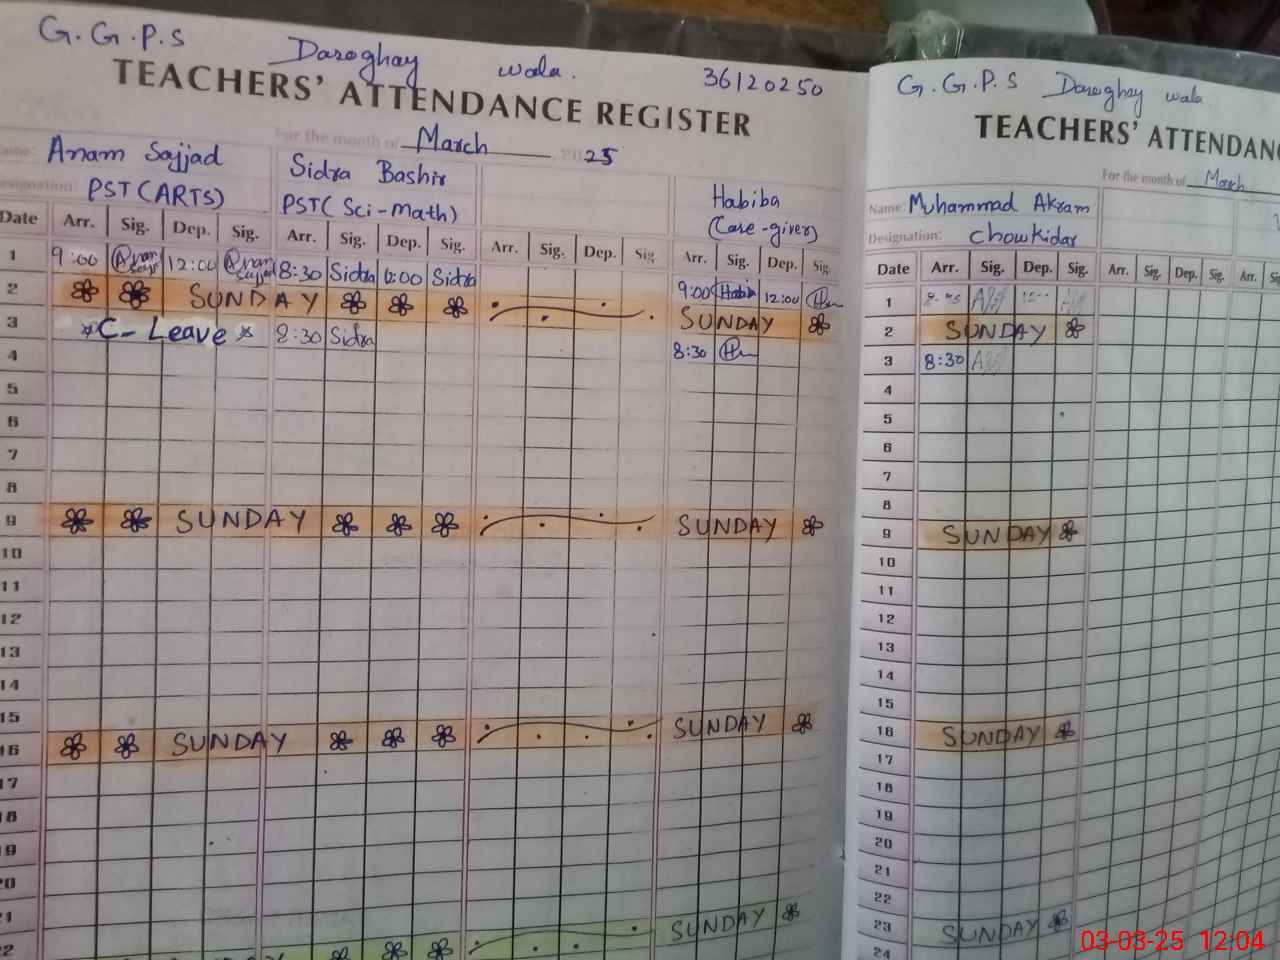 G.G.P.S Daroghay wala. 36120250
TEACHERS' ATTENDANCE REGISTER
For the month of March 2025
Name: Anam Sajjad Sidra Bashir Habiba
Designation: PST (ARTS) PST (Sci-Math) (Care-giver)
Date Arr. Sig. Dep. Sig. Arr. Sig. Dep. Sig. Arr. Sig. Dep. Sig. Arr. Sig. Dep. Sig.
1 9:00 Anam Sajjad 12:00 Anam Sajjad 8:30 Sidra 12:00 Sidra 9:00 Habib 12:00
2 SUNDAY SUNDAY
3 C-Leave 8:30 Sidra 8:30
4
5
6
7
8
9 SUNDAY SUNDAY
10
11
12
13
14
15
16 SUNDAY SUNDAY
17
18
19
20
21
22 SUNDAY
G.G.P.S Daroghay wala
TEACHERS' ATTENDANC
For the month of March
Name: Muhammad Akram
Designation: Chowkidar
Date Arr. Sig. Dep. Sig. Arr. Sig. Dep. Sig. Arr. Sig.
1
2 SUNDAY
3 8:30
4
5
6
7
8
9 SUNDAY
10
11
12
13
14
15
16 SUNDAY
17
18
19
20
21
22
23 SUNDAY
24
03-03-25 12:04